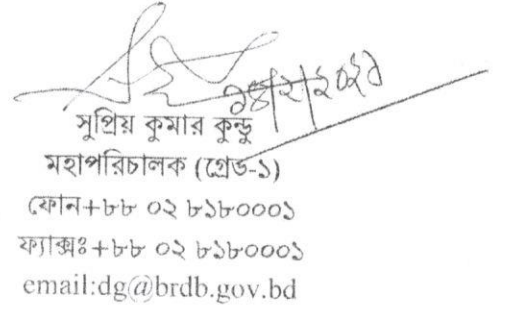 ১৪/২/২০২১
সুপ্রিয় কুমার কুন্ডু
মহাপরিচালক (গ্রেড-১)
ফোন+৮৮ ০২ ৮১৮০০০১
ফ্যাক্সঃ+৮৮ ০২ ৮১৮০০০১
email:dg@brdb.gov.bd